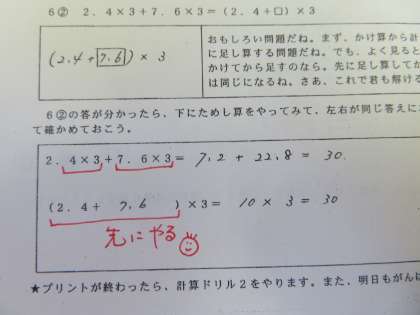 6② 2.4×3+7.6×3=(2.4+□)×3
(2.4+7.6)×3
おもしろい問題だね。まず、かけ算から計
に足し算する問題だね。でも、よく見ると
かけてから足すのなら、先に足し算してか
は同じになるね。さあ、これで君も解ける
6②の答が分かったら、下にためし算をやってみて、左右が同じ答えに
て確かめておこう。
2.4×3+7.6×3= 7.2+22.8=30.
(2.4+ 7.6 )×3= 10×3=30
先にやる
★プリントが終わったら、計算ドリル2をやります。また、明日もがん